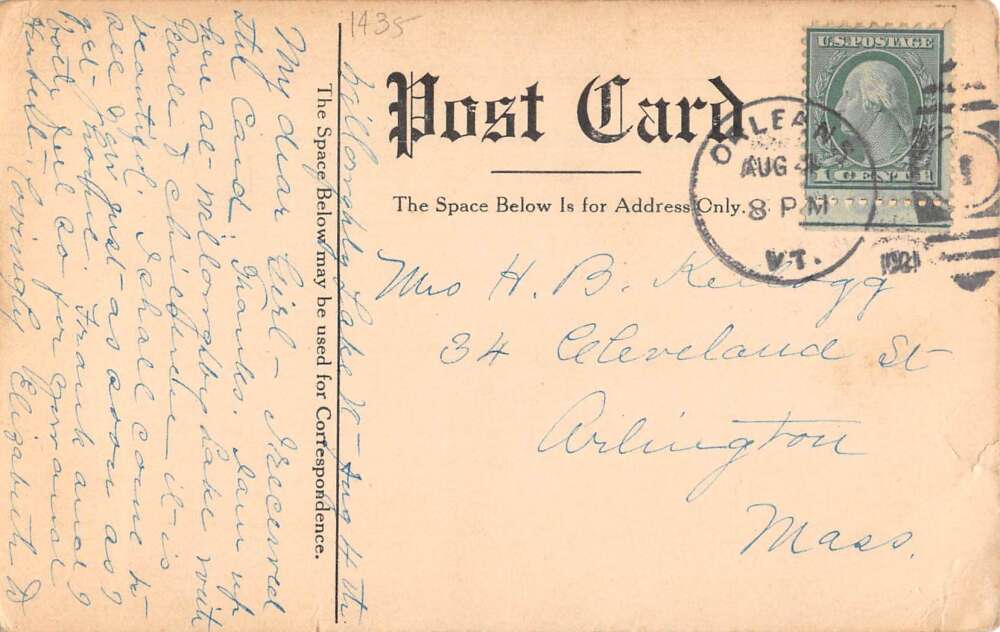 1435
Post Card
The Space Below Is for Address Only.
The Space Below may be used for Correspondence.
U.S. POSTAGE
1 CENT 1
ORLEANS
AUG 4
8 PM
VT.
1921
Mrs H. B. Kellogg
34 Cleveland St
Arlington
Mass.
Willoughby Lake Vt Aug 4th
My dear Girl - I received
the Card, Thanks. I am up
here at Willoughby Lake with
Pearl & children it is
beautiful. I shall come to
see you just as soon as I
get home. Frank and I
both feel so for you and
Lovingly Elizabeth D